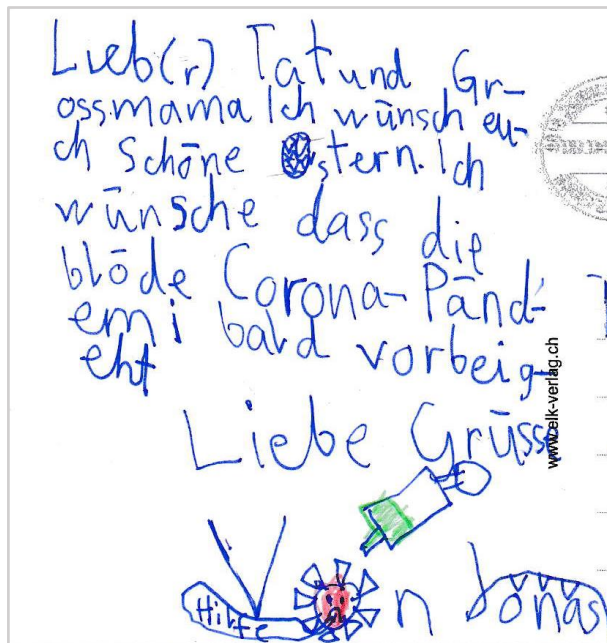 Lieb(r) Tat und Gr-
ossmama Ich wünsch eu-
ch schöne Ostern. Ich
wünsche dass die
blöde Corona-Pänd-
emi bald vorbeig-
eht
Liebe Grüsse
Von Jonas
Hilfe
www.elk-verlag.ch